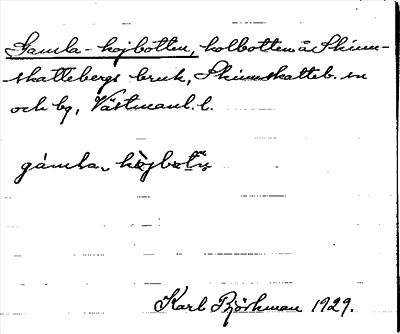 Gamla-kojbotten, kolbotten å Skinn-
skattebergs bruk, Skinnskatteb. sn
och bg, Västmanl. l.
gámla-
Karl Björkman 1929.